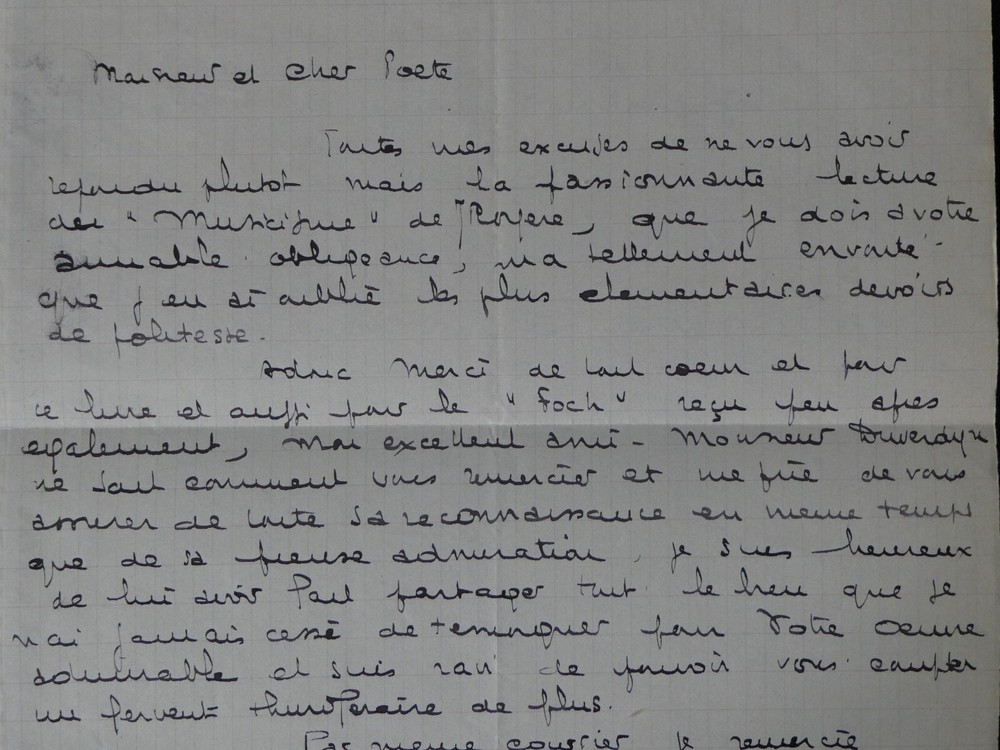 Monsieur et Cher Poete
Toutes mes excuses de ne vous avoir
repondu plutot mais la passionnante lecture
du " Musicisme " de J Royere, que je dois a votre
aimable obligeance, m'a tellement envouté
que j'en ai oublié les plus elementaires devoirs
de politesse.
Donc Merci de tout coeur et pour
ce livre et aussi pour le " Foch " reçu peu apres
egalement, mon excellent ami - Monsieur Duverdyn
ne sait comment vous remercier et me prie de vous
assurer de toute sa reconnaissance en meme temps
que de sa pieuse admiration, je suis heureux
de lui avoir fait partager tout le bien que je
n'ai jamais cessé de temoigner pour Votre Oeuvre
admirable et suis ravi de pouvoir vous compter
un fervent thuriferaire de plus.
Par meme courrier je remercie